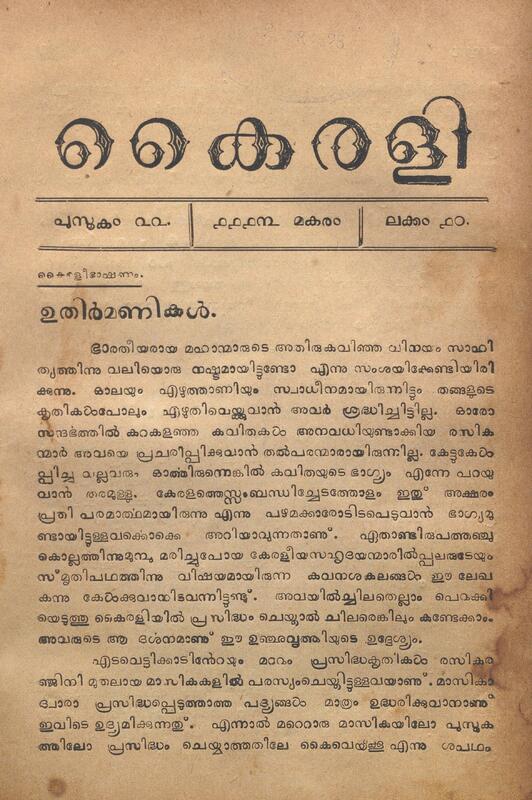 കൈരളി
പുസ്തകം ൨൨.
൧൧൧൩ മകരം
ലക്കം ൧൦.
കൈരളീഭാഷണം.
ഉതിർമണികൾ.
ഭാരതീയരായ മഹാന്മാരുടെ അതിരുകവിഞ്ഞ വിനയം സാഹി
ത്യത്തിന്നു വലിയൊരു നഷ്ടമായിട്ടുണ്ടോ എന്നു സംശയിക്കേണ്ടിയിരി
ക്കുന്നു. ഓലയും എഴുത്താണിയും സ്വാധീനമായിരുന്നിട്ടും തങ്ങളുടെ
കൃതികൾപോലും എഴുതിവെയ്ക്കുവാൻ അവർ ശ്രദ്ധിച്ചിട്ടില്ല. ഓരോ
സന്ദർഭത്തിൽ കുറകളഞ്ഞ കവിതകൾ അനവധിയുണ്ടാക്കിയ രസിക
ന്മാർ അവയെ പ്രചരിപ്പിക്കുവാൻ തൽപരന്മാരായിരുന്നില്ല. കേട്ടുകേൾ
പ്പിച്ച വല്ലവരും ഓൎത്തിരുന്നെങ്കിൽ കവിതയുടെ ഭാഗ്യം എന്നേ പറയു
വാൻ തരമുള്ളൂ. കേരളത്തെസ്സംബന്ധിച്ചേടത്തോളം ഇതു് അക്ഷരം
പ്രതി പരമാൎത്ഥമായിരുന്നു എന്നു പഴമക്കാരോടിടപെടുവാൻ ഭാഗ്യമു
ണ്ടായിട്ടുള്ളവൎക്കൊക്കെ അറിയാവുന്നതാണു്. ഏതാണ്ടിരുപത്തഞ്ചു
കൊല്ലത്തിന്നുമുമ്പു മരിച്ചുപോയ കേരളീയസഹൃദയന്മാരിൽപ്പലരുടേയും
സ്മൃതിപഥത്തിന്നു വിഷയമായിരുന്ന കവനശകലങ്ങൾ ഈ ലേഖ
കന്നു കേൾക്കുവാനിടവന്നിട്ടുണ്ടു്. അവയിൽച്ചിലതെല്ലാം പെറുക്കി
യെടുത്തു കൈരളിയിൽ പ്രസിദ്ധം ചെയ്താൽ ചിലരെങ്കിലും കണ്ടേക്കാം.
അവരുടെ ആ ദൎശനമാണു് ഈ ഉഞ്ഛവൃത്തിയുടെ ഉദ്ദേശ്യം.
എടവെട്ടിക്കാടിൻേറയും മററും പ്രസിദ്ധകൃതികൾ രസികര
ഞ്ജിനി മുതലായ മാസികകളിൽ പരസ്യംചെയ്തിട്ടുള്ളവയാണു്. മാസികാ
ദ്വാരാ പ്രസിദ്ധപ്പെടുത്താത്ത പദ്യങ്ങൾ മാത്രം ഉദ്ധരിക്കുവാനാണു്
ഇവിടെ ഉദ്യമിക്കുന്നതു്. എന്നാൽ മറെറാരു മാസികയിലോ പുസ്തക
ത്തിലോ പ്രസിദ്ധം ചെയ്യാത്തതിലേ കൈവെയ്ക്കൂ എന്നു ശപഥം